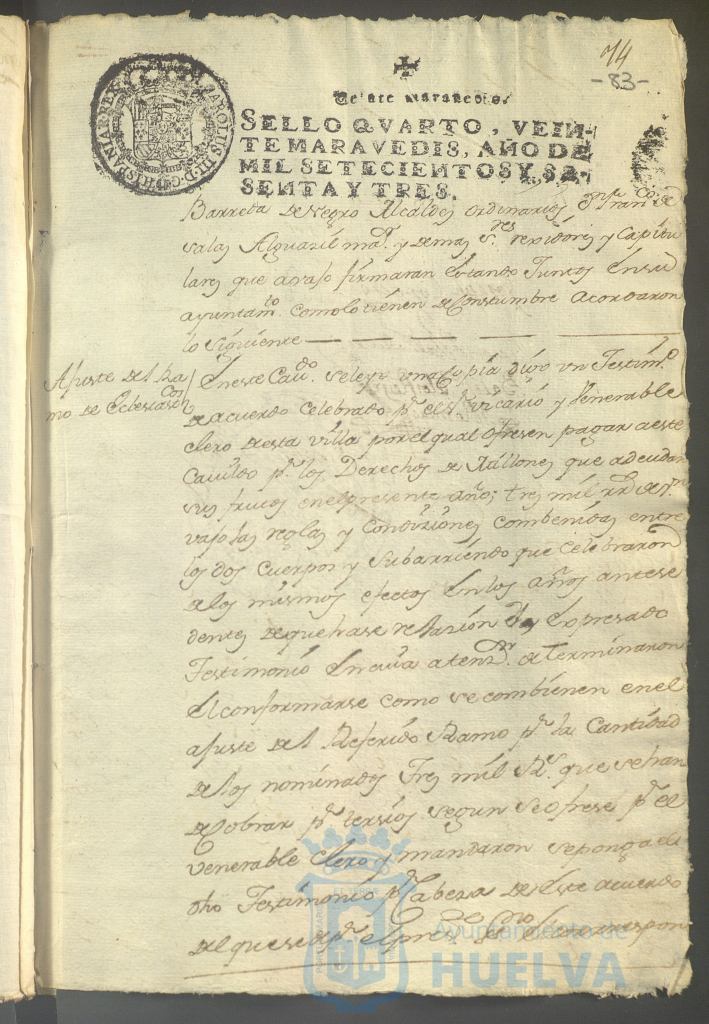 74
-83-
CAROLUS III D.G. HISPANIAR REX
Veinte maravedis.
SELLO QVARTO, VEIN-
TE MARAVEDIS, AÑO DE
MIL SETECIENTOS Y SE-
SENTA Y TRES.
Barreda de Negro Alcaldes ordinarios Dn Franco de
salas Alguazil mar. y demas Sres rexidores y Capitu
lares que avajo firmaran estando Juntos en su
ayuntamto. como lo tienen de Constumbre acordaron
lo siguiente
Ajuste del Ra
mo de Eclesiascos
En este Cavdo. se leyo una Copia digo un Testimo
de acuerdo celebrado pr el Sr vicario y Venerable
clero de esta villa por el qual ofresen pagar a este
Cavildo pr los Derechos de Millones que adeudan
sus frutos en el presente año; tres mil rrs de vn
vajo las reglas y Condiziones combenidas entre
los dos Cuerpos y subarriendo que celebraron
a los mismos efectos en los años antese
dentes de que hase relazion el expresado
Testimonio en cuia atenzn. determinaron
el conformarse como se combienen en el
ajuste del Referido Ramo pr la Cantidad
de los nominados Tres mil Rs. que se han
de Cobrar pr tersios segun se ofrese pr el
venerable clero y mandaron se ponga el
dho Testimonio pr Cabeza de este acuerdo
del que se de pr el preste Essno el correspon
Ayuntamiento de
HUELVA